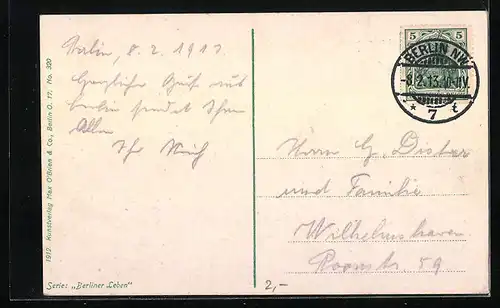 Berlin, 8. 2. 1913
Herzlicher Gruß aus
Berlin sendet Ihnen
Allen
Ihr
Herrn G.
und Familie
Wilhelmshaven
Roonstr. 59
5 5
BERLIN NW
-8.2.13. 11-12V
* 7 t
1912. Kunstverlag Max O'Brien & Co., Berlin O. 17. No. 320
Serie: „Berliner Leben"
2,-